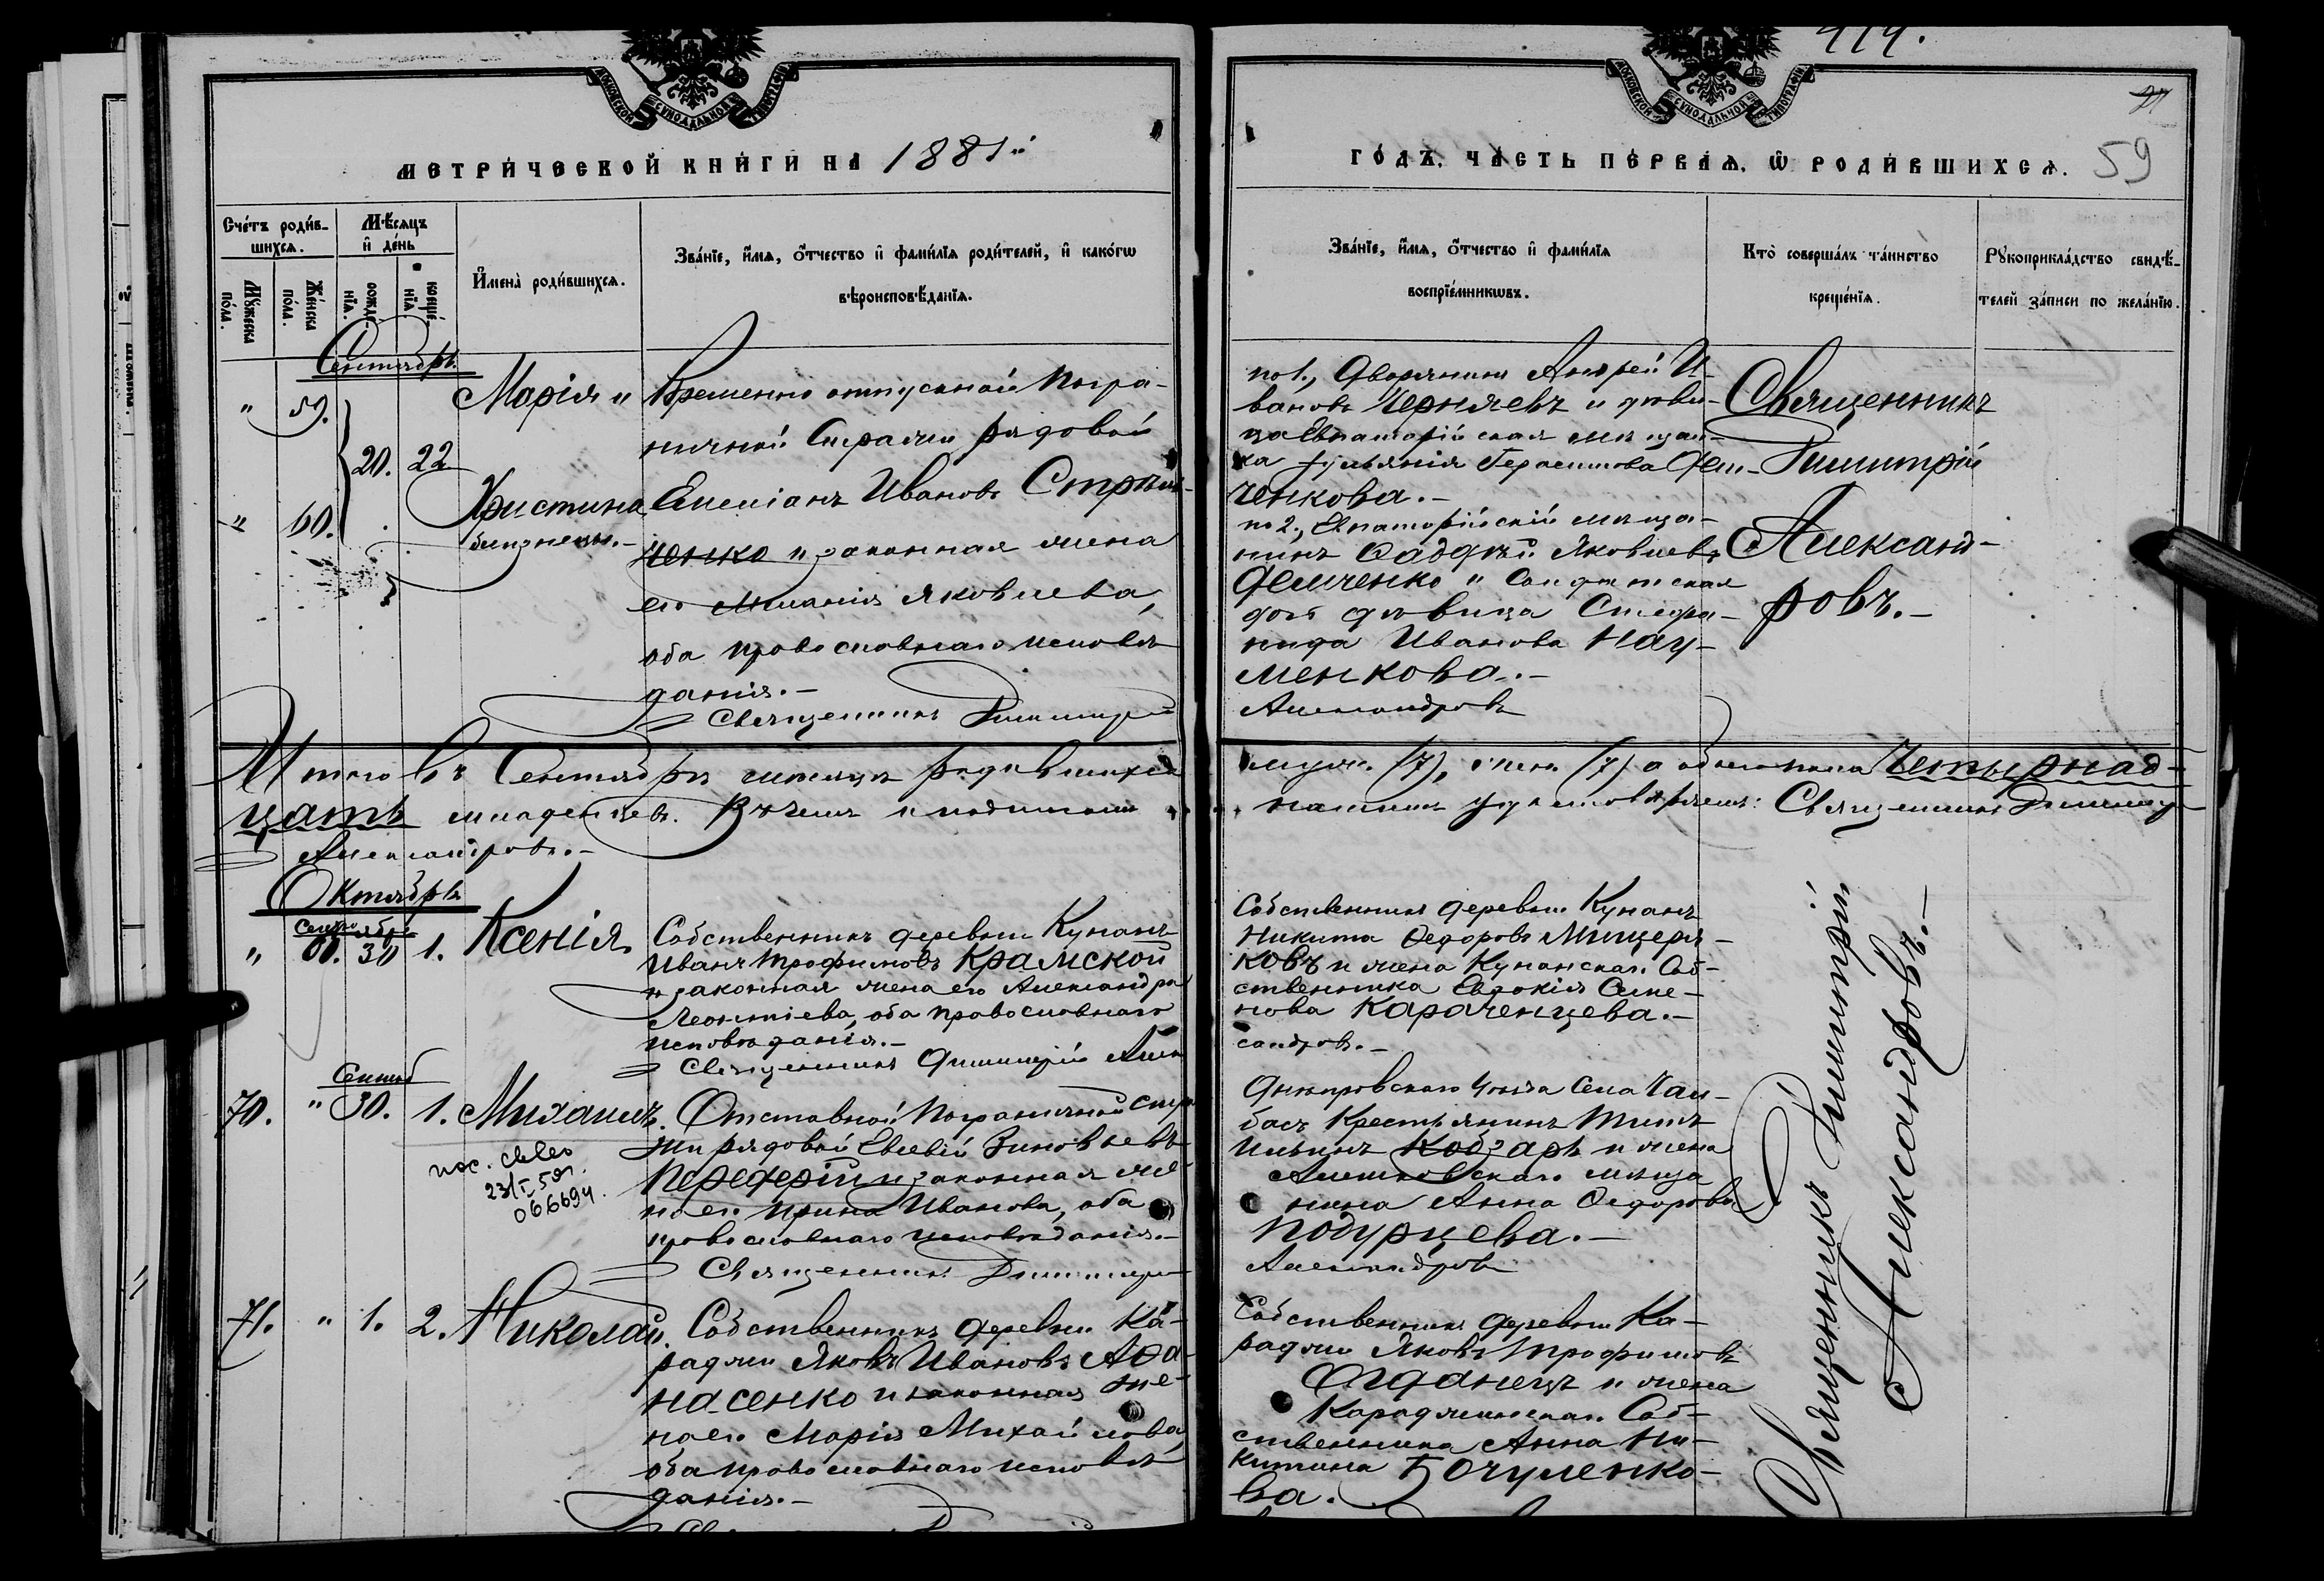 414.
МОСКОВСКОЙ СУНОДАЛЬНОЙ ТИПОГРАФІИ
МОСКОВСКОЙ СУНОДАЛЬНОЙ ТИПОГРАФІИ
МЕТРИ́ЧЕСКОЙ КНИ́ГИ НА 1881й
ГО́ДЪ, ЧА́СТЬ ПЕ́РВАѦ, Ѡ РОДИ́ВШИХСѦ.
59
Сче́тъ роди́в-
шихсѧ.
Мꙋ́жеска по́ла.
Же́нска по́ла.
Мѣ́сѧцъ и҆ де́нь
рожде́нїѧ.
креще́нїѧ.
И҆мена̀ роди́вшихсѧ.
Зва́нїе, и҆́мѧ, ѻ҆́тчество и҆ фами́лїѧ роди́телей, и҆ како́гѡ
вѣроисповѣ́данїѧ.
Зва́нїе, и҆́мѧ, ѻ҆́тчество и҆ фами́лїѧ
воспрїе́мникѡвъ.
Кто̀ соверша́лъ та́инство
креще́нїѧ.
Рꙋкоприкла́дство свидѣ́-
телей за́писи по жела́нїю.
Сентябрь.
" 59.
20. 22
" 60.
Марія и
Христина
близнецы.-
Временно отпускной Погра-
ничной Стражи рядовой
Емеліанъ Ивановъ Стрѣль-
ченко и законная жена
его Меланія Яковлева,
оба православнаго исповѣ
данія.-
Священникъ Димитрій
по 1., Дворянинъ Андрей И-
вановъ Черняевъ и дѣви-
ца Евпаторійская мѣщан-
ка Іульянія Герасимова Дем-
ченкова.-
по 2., Евпаторійскій мѣща-
нинъ Фаддѣй Яковлевъ
Демченко и Солдатская
дочь дѣвица Степа-
нида Иванова Нау-
менкова.-
Александровъ
Священникъ
Димитрій
Александ-
ровъ.-
Итого въ Сентябрѣ мѣсяцѣ родившихся
муж. (7), жен. (7) а обоего пола Четырнад-
цать младенцевъ. Въ чемъ и подписомъ
нашимъ удостовѣряемъ: Священникъ Димитрій
Александровъ.-
Октябрь
Сентября
" 61. 30 1. Ксенія.
Собственникъ деревни Кунанъ
Иванъ Трофимовъ Крамской
и законная жена его Александра
Леонтіева, оба православнаго
исповѣданія.-
Священникъ Димитрій Алек
Собственникъ деревни Кунанъ
Никита Ѳедоровъ Мищеря-
ковъ и жена Кунанскаго Соб-
ственника Евдокія Семе-
нова Караченцева.-
сандровъ.-
Сентяб
70. " 30. 1. Михаилъ.
23/I 50г.
066694.
Отставной Пограничной стра
жи рядовой Евсевій Зиновьевъ
Передерій и законная же-
на его Ирина Иванова, оба
православнаго исповѣданія.-
Священникъ Димитрій
Днѣпровскаго уѣзда Села Чал-
басъ Крестьянинъ Титъ
Ильинъ Кобзарь и жена
Алешковскаго мѣща
нина Анна Ѳедорова
Подурцева.-
Александровъ
71. " 1. 2. Николай.
Собственникъ деревни Ка-
раджи Яковъ Ивановъ Аѳа-
насенко и законная же-
на его Марія Михайлова,
оба православнаго исповѣ
данія.-
Собственникъ деревни Ка-
раджи Яковъ Трофимовъ
Огданецъ и жена
Караджинскаго Соб-
ственника Анна Ни-
китина Бочуленко-
ва.
Священникъ Димитрій
Александровъ.-